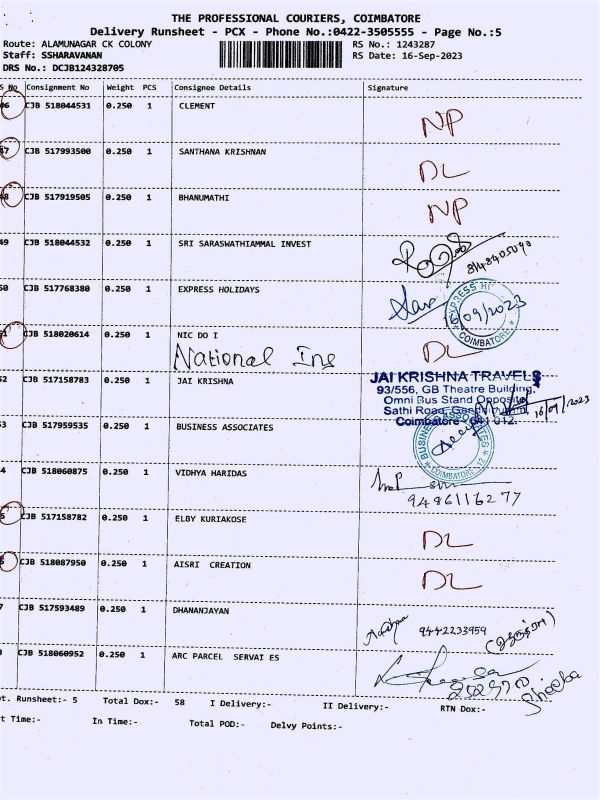 THE PROFESSIONAL COURIERS, COIMBATORE
Delivery Runsheet - PCX - Phone No.:0422-3505555 - Page No.:5
Route: ALAMUNAGAR CK COLONY RS No.: 1243287
Staff: SSHARAVANAN RS Date: 16-Sep-2023
DRS No.: DCJB124328705
S No Consignment No Weight PCS Consignee Details Signature
46 CJB 518044531 0.250 1 CLEMENT NP
47 CJB 517993500 0.250 1 SANTHANA KRISHNAN DL
48 CJB 517919505 0.250 1 BHANUMATHI NP
49 CJB 518044532 0.250 1 SRI SARASWATHIAMMAL INVEST
50 CJB 517768380 0.250 1 EXPRESS HOLIDAYS
16/09/2023
COIMBATORE
51 CJB 518020614 0.250 1 NIC DO I DL
National Ins
52 CJB 517158783 0.250 1 JAI KRISHNA
JAI KRISHNA TRAVELS
93/556, GB Theatre Building,
Omni Bus Stand Opposite
Sathi Road,
Coimbatore - 641 012.
16/09/2023
53 CJB 517959535 0.250 1 BUSINESS ASSOCIATES
BUSINESS ASSOCIATES
COIMBATORE-12
54 CJB 518060875 0.250 1 VIDHYA HARIDAS
9486116277
55 CJB 517158782 0.250 1 ELBY KURIAKOSE DL
56 CJB 518087950 0.250 1 AISRI CREATION DL
7 CJB 517593489 0.250 1 DHANANJAYAN 9442233959
CJB 518060952 0.250 1 ARC PARCEL SERVAI ES
Shoeba
t. Runsheet:- 5 Total Dox:- 58 I Delivery:- II Delivery:- RTN Dox:-
t Time:- In Time:- Total POD:- Delvy Points:-